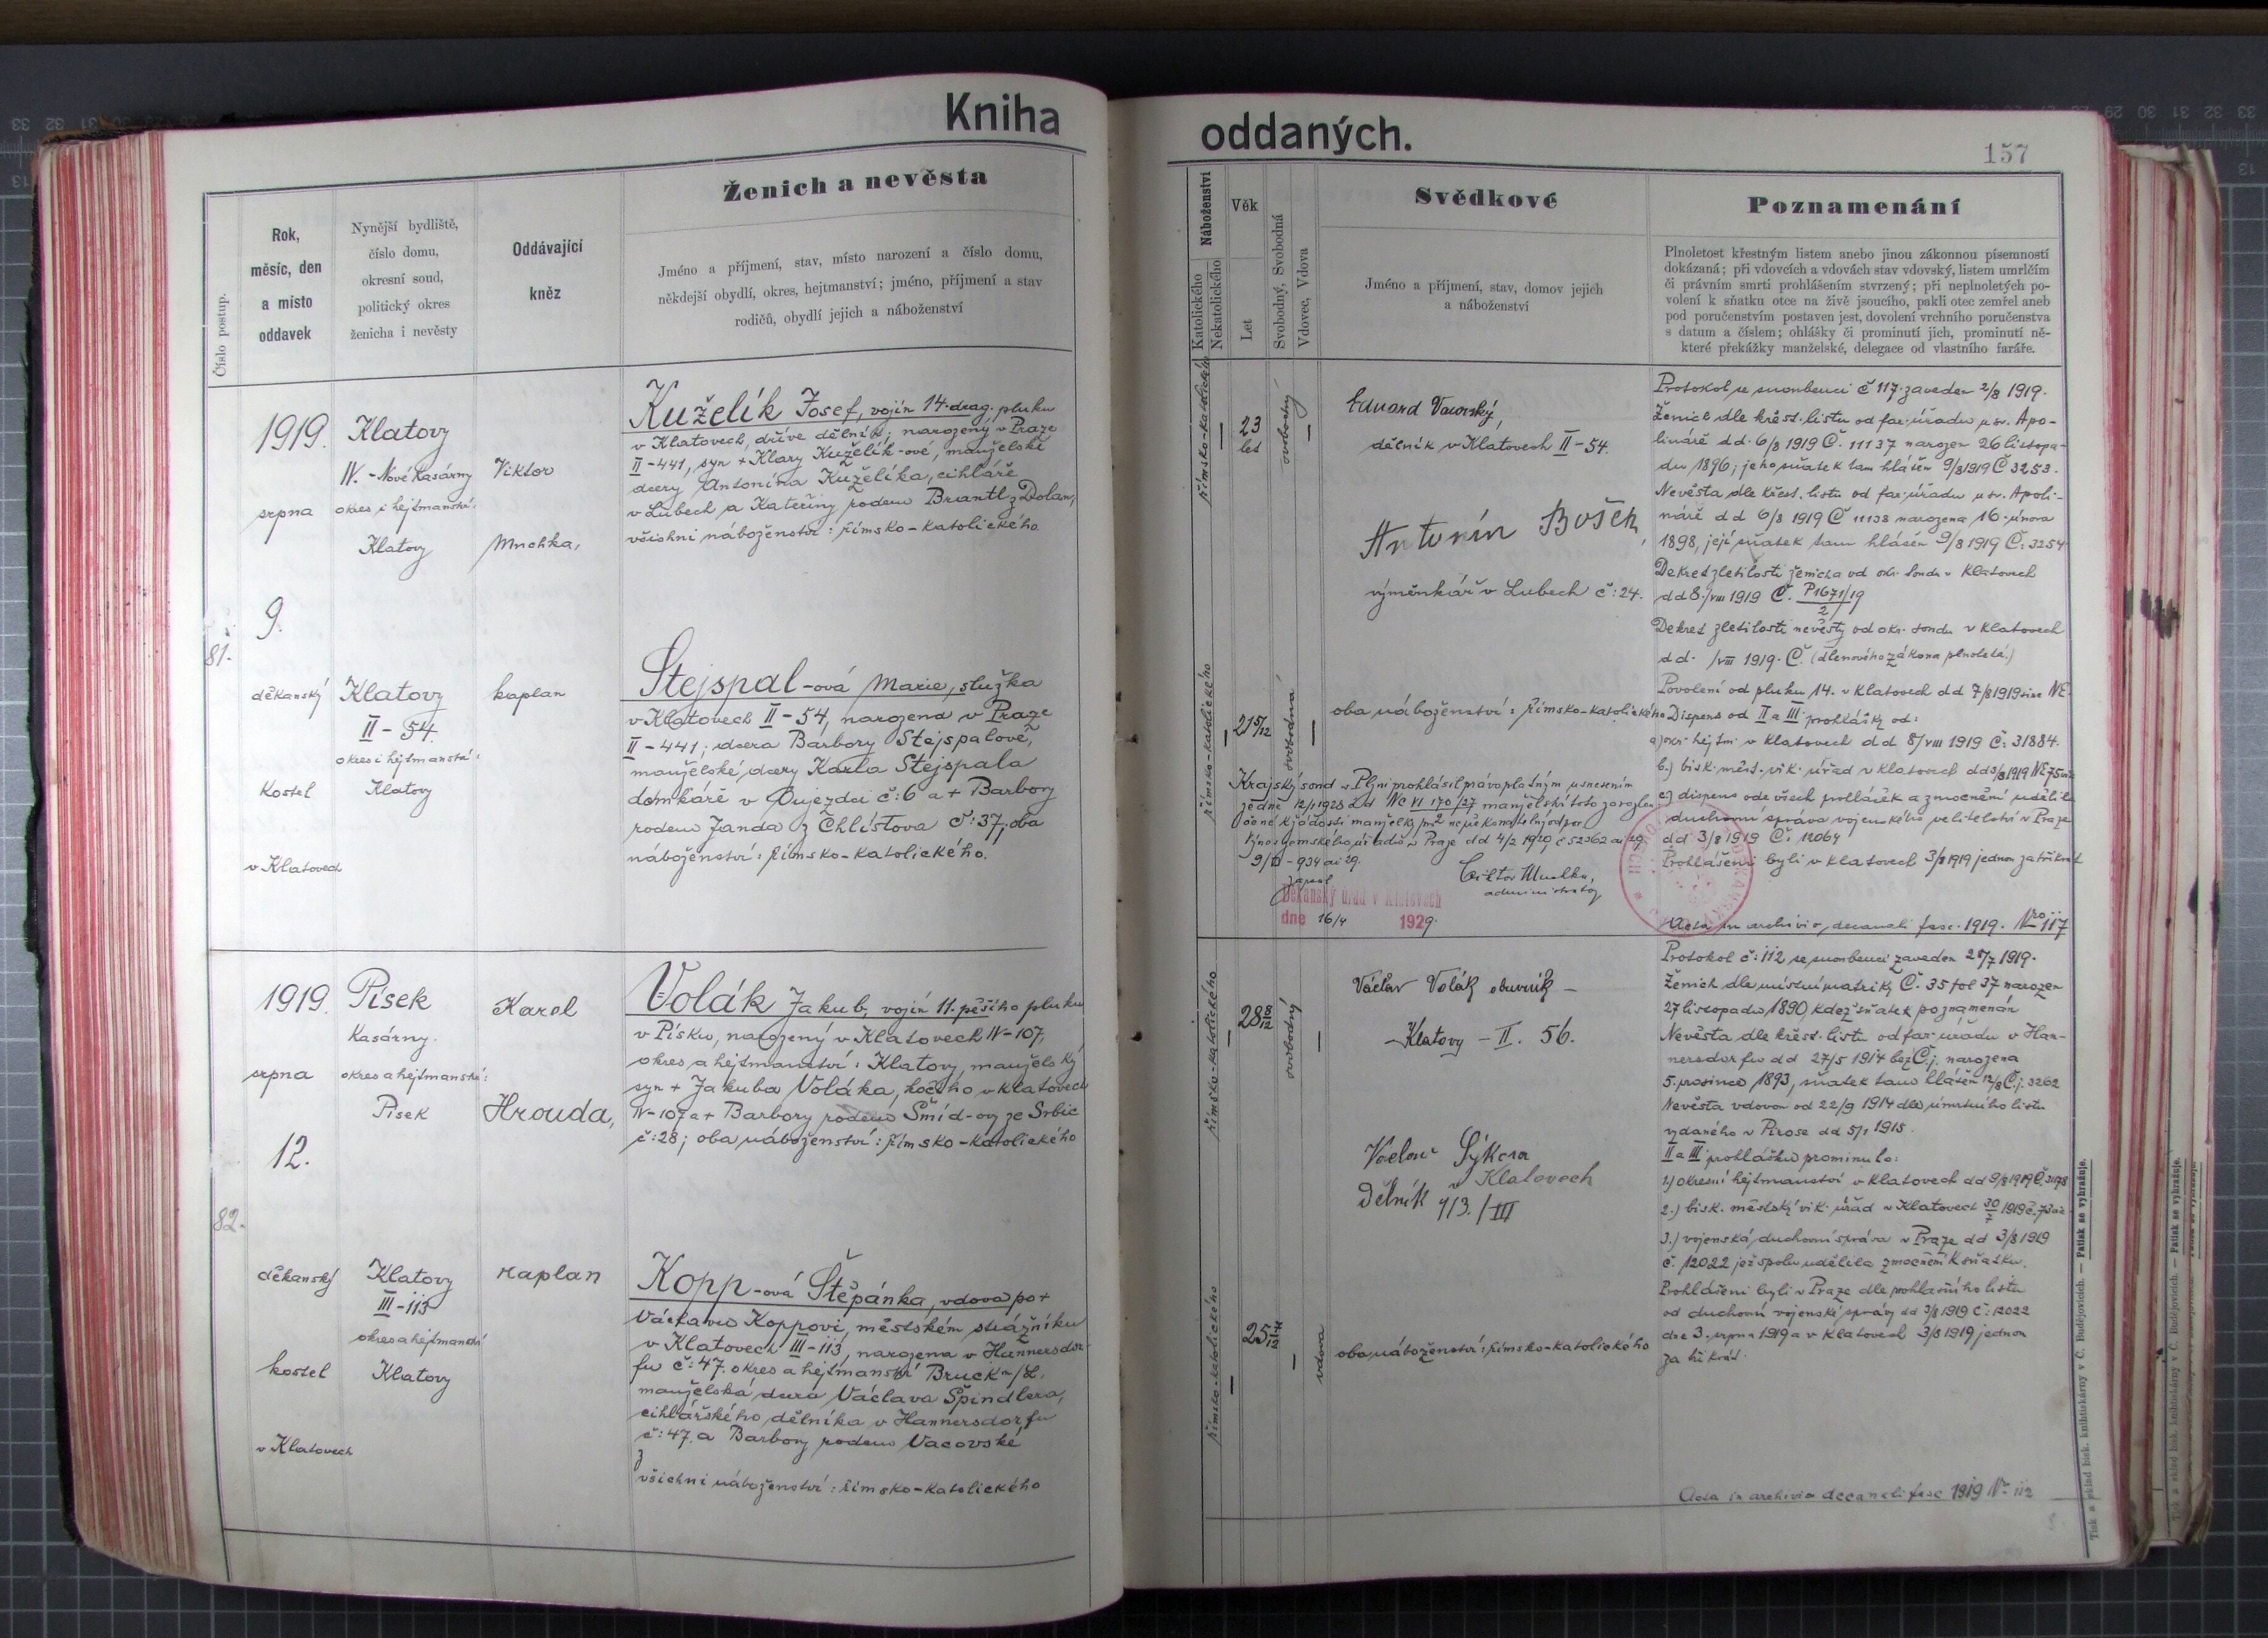 Kniha
oddaných.
157
Číslo postup.
Rok,
měsíc, den
a místo
oddavek
Nynější bydliště,
číslo domu,
okresní soud,
politický okres
ženicha i nevěsty
Oddávající
kněz
Ženich a nevěsta
Jméno a příjmení, stav, místo narození a číslo domu,
někdejší obydlí, okres, hejtmanství; jméno, příjmení a stav
rodičů, obydlí jejich a náboženství
Náboženství
Katolického
Nekatolického
Věk
Let
Svobodný, Svobodná
Vdovec, Vdova
Svědkové
Jméno a příjmení, stav, domov jejich
a náboženství
Poznamenání
Plnoletost křestným listem anebo jinou zákonnou písemností
dokázaná; při vdovcích a vdovách stav vdovský, listem umrlčím
či právním smrti prohlášením stvrzený; při neplnoletých po-
volení k sňatku otce na živě jsoucího, pakli otec zemřel aneb
pod poručenstvím postaven jest, dovolení vrchního poručenstva
s datum a číslem; ohlášky či prominutí jich, prominutí ně-
které překážky manželské, delegace od vlastního faráře.
81.
1919.
srpna
9.
děkanský
kostel
v Klatovech
Klatovy
IV. - Nové kasárny
okres i hejtmanství:
Klatovy
Klatovy
II - 54.
okres i hejtmanství:
Klatovy
Viktor
Mnohka,
kaplan
Kuželík Josef, vojín 14. drag. pluku
v Klatovech, dříve dělník; narozený v Praze
II-441, syn + Klary Kuželík-ové, manželské
dcery Antonína Kuželíka, cihláře
v Lubech a Kateřiny rodem Brantl z Dolan,
všichni náboženství: římsko-katolického.
Stejspal-ová Marie, služka
v Klatovech II-54, narozena v Praze
II-441; dcera Barbory Stejspalové,
manželské dcery Karla Stejspala
domkáře v Oujezdci č: 6 a + Barbory
rodem Janda z Chlístova č: 37; oba
náboženství: římsko-katolického.
římsko-katolického
23
let
svobodný
římsko-katolického
21 5/12
svobodná
Eduard Vacovský,
dělník v Klatovech II-54.
Antonín Bošek,
výměnkář v Lubech č: 24.
oba náboženství: římsko-katolického
Krajský soud v Plzni prohlásil právoplatným usnesením
ze dne 12/1 1928 Nc VI 170/27 manželství toto za rozlou-
čené k žádosti manželky pro nepřekonatelný odpor
Výnos zemského úřadu v Praze dd 4/2 1929 č 52362 ai 29
Viktor Mnohka,
administrator
Děkanský úřad v Klatovech
dne 16/4 1929.
Protokol se snoubenci č 117. zaveden 2/8 1919.
Ženich dle křest. listu od far. úřadu u sv. Apo-
lináře dd. 6/8 1919 Č. 11137 narozen 26 listopa-
du 1896; jeho sňatek tam hlášen 9/8 1919 Č 3253.
Nevěsta dle křest. listu od far. úřadu u sv. Apoli-
náře dd 6/8 1919 Č 11138 narozena 16. února
1898, její sňatek tam hlášen 9/8 1919 Č: 3254
Dekret zletilosti ženicha od okr. soudu v Klatovech
dd 8./VIII 1919 Č. P1671/19
2
Dekret zletilosti nevěsty od okr. soudu v Klatovech
dd. /VIII 1919. Č. (dle nového zákona plnoletá.)
Povolení od pluku 14. v Klatovech dd 7/8 1919 sine NE.
Dispens od II a III prohlášky od:
a) okr. hejtm. v Klatovech dd 8/VIII 1919 Č: 31884.
b.) bisk. měst. vik. úřad v Klatovech
c) dispens ode všech prohlášek a zmocnění udělila
duchovní správa vojenského velitelství v Praze
dd 3/8 1919 Č. 12064
Prohlášeni byli v Klatovech 3/8 1919 jednou za třikrát
Acta in archivio decanali fasc. 1919. Nro 117
82.
1919.
srpna
12.
děkanský
kostel
v Klatovech
Písek
Kasárny.
okres a hejtmanství:
Písek
Klatovy
III-113
okres a hejtmanství
Klatovy
Karel
Hrouda,
kaplan
Volák Jakub, vojín 11. pěšího pluku
v Písku, narozený v Klatovech IV-107,
okres a hejtmanství: Klatovy, manželský
syn + Jakuba Voláka, kočího v Klatovech
IV-107 a + Barbory rodem Šmíd-ovy ze Srbic
č: 28; oba náboženství: římsko-katolického
Kopp-ová Štěpánka, vdova po +
Václavu Koppovi, městském strážníku
v Klatovech III-113, narozena v Hannersdor-
fu č: 47. okres a hejtmanství Bruck n/L.
manželská dcera Václava Špindlera,
cihlářského dělníka v Hannersdorfu
č: 47. a Barbory rodem Vacovské
z
všichni náboženství: římsko-katolického
římsko-katolického
28 8/12
svobodný
římsko-katolického
vdova
Václav Volák obuvník -
- Klatovy - II. 56.
Václav Sýkora
Dělník v Klatovech
113./III
oba náboženství: římsko-katolického
Protokol č: 112 se snoubenci zaveden 28/7 1919.
Ženich dle místní matriky Č. 35 fol 37 narozen
27 listopadu 1890, kdež sňatek poznamenán
Nevěsta dle křest. listu od far. úřadu v Han-
nersdorfu dd 27/5 1914 bez Č.j. narozena
5. prosince 1893, sňatek tam hlášen 12/8 Č.j. 3262
Nevěsta vdovou od 22/9 1914 dle úmrtního listu
vydaného v Pirose dd 5/1 1915.
II a III prohlášku prominulo:
1) okresní hejtmanství v Klatovech dd 9/8 1919
2.) bisk. městský vik. úřad v Klatovech 30/7 1919
3.) vojenská duchovní správa v Praze dd 3/8 1919
č. 12022 jež spolu udělila zmocnění k sňatku.
Prohlášeni byli v Praze dle prohlašního listu
od duchovní vojenské správy dd 3/8 1919 č: 12022
dne 3. srpna 1919 a v Klatovech 3/8 1919 jednou
za třikrát.
Acta in archivio decanali fasc 1919 No 112
Tisk a sklad bisk. knihtiskárny v Č. Budějovicích. — Patisk se vyhražuje.